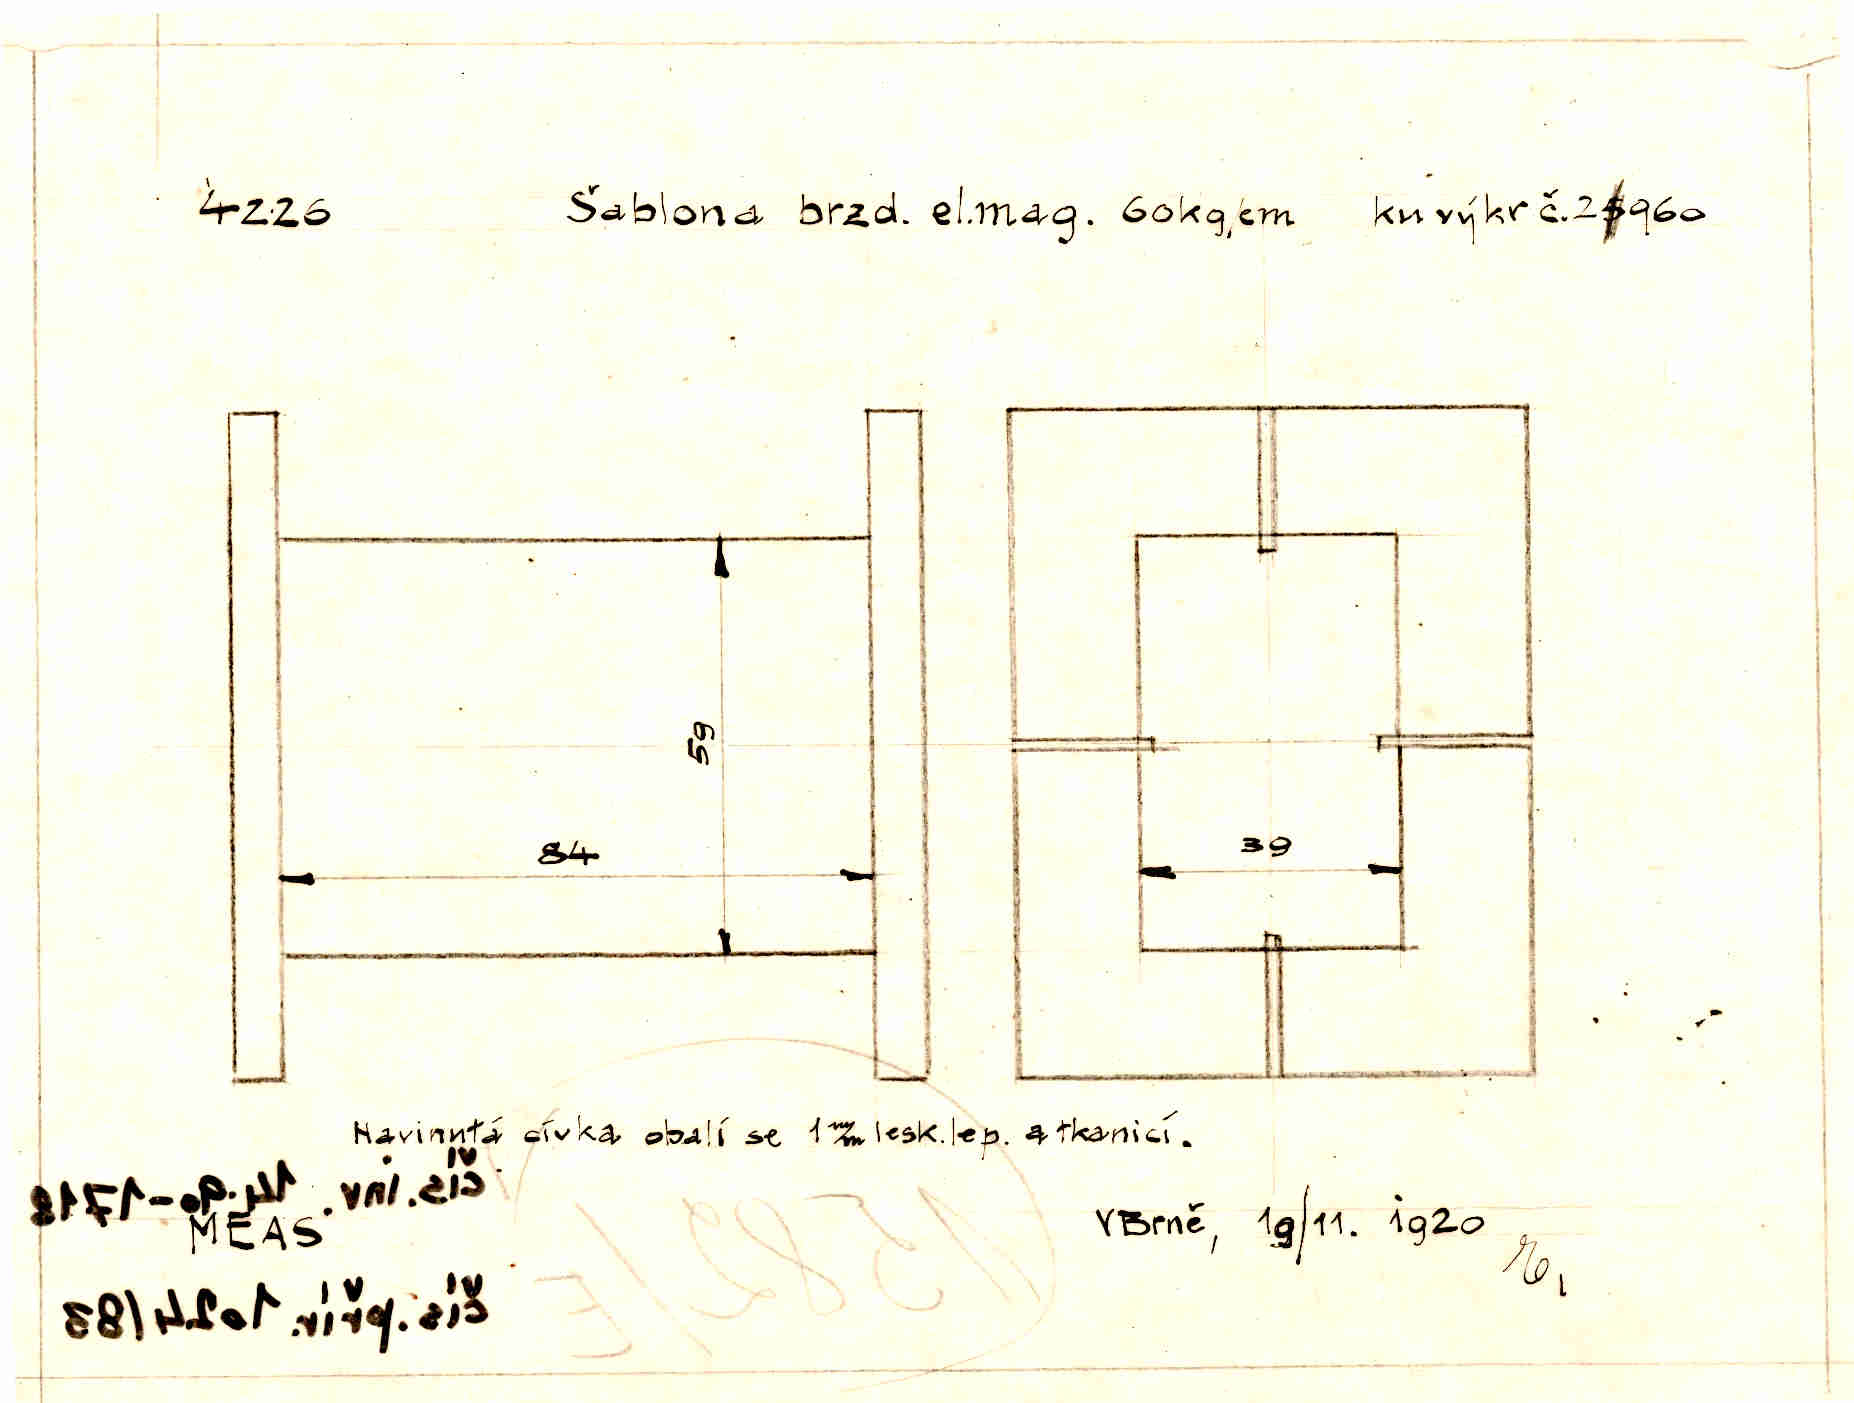 4226 Šablona brzd. el.mag. 60kg/cm ku výkr č.
59
84
39
Navinutá cívka obalí se 1 m/m lesk.lep. a tkanicí.
čís.inv. 14.90-1718
MEAS
V Brně, 19/11. 1920
čís.přír. 1024/83
1582/E